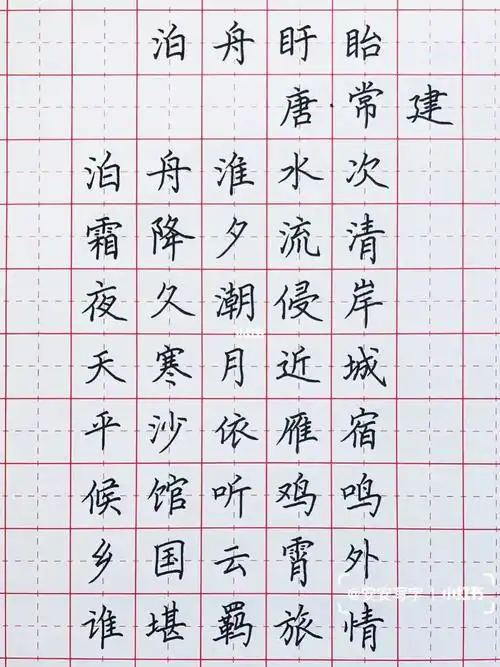 泊舟盱眙
唐·常建
泊舟淮水次
霜降夕流清
夜久潮侵岸
天寒月近城
平沙依雁宿
候馆听鸡鸣
乡国云霄外
谁堪羁旅情
小红书
@安安写字 | 小红书